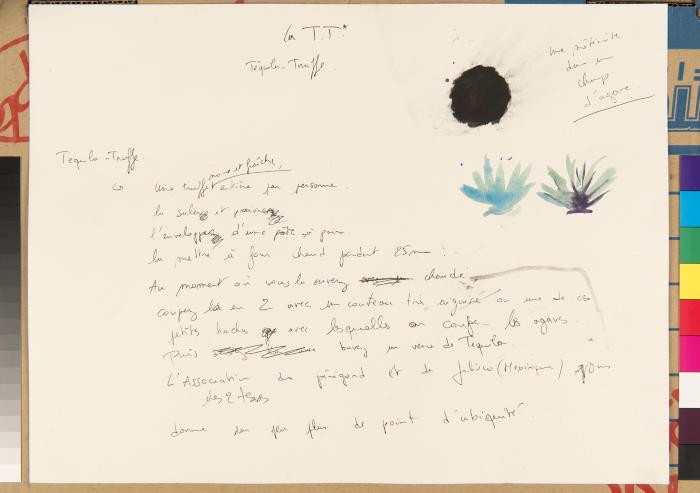 La T.T.*
Tequila-Truffe
une météorite
dans un
champ
d'agave
Tequila-Truffe.
noire et fraîche,
une truffe entière par personne.
la salez et poivrez
l'enveloppez d'une pâte à pain
la mettre à four chaud pendant 25 mn !
Au moment où vous la ouvrez chaude
coupez la en 2 avec un couteau très aiguisé ou une de ces
petites haches avec lesquelles on coupe les agaves.
Puis buvez un verre de Tequila.
L'Association du périgord et de Jalisco (Mexique)
des 2 terres
donne un peu plus de point d'ubiquité.